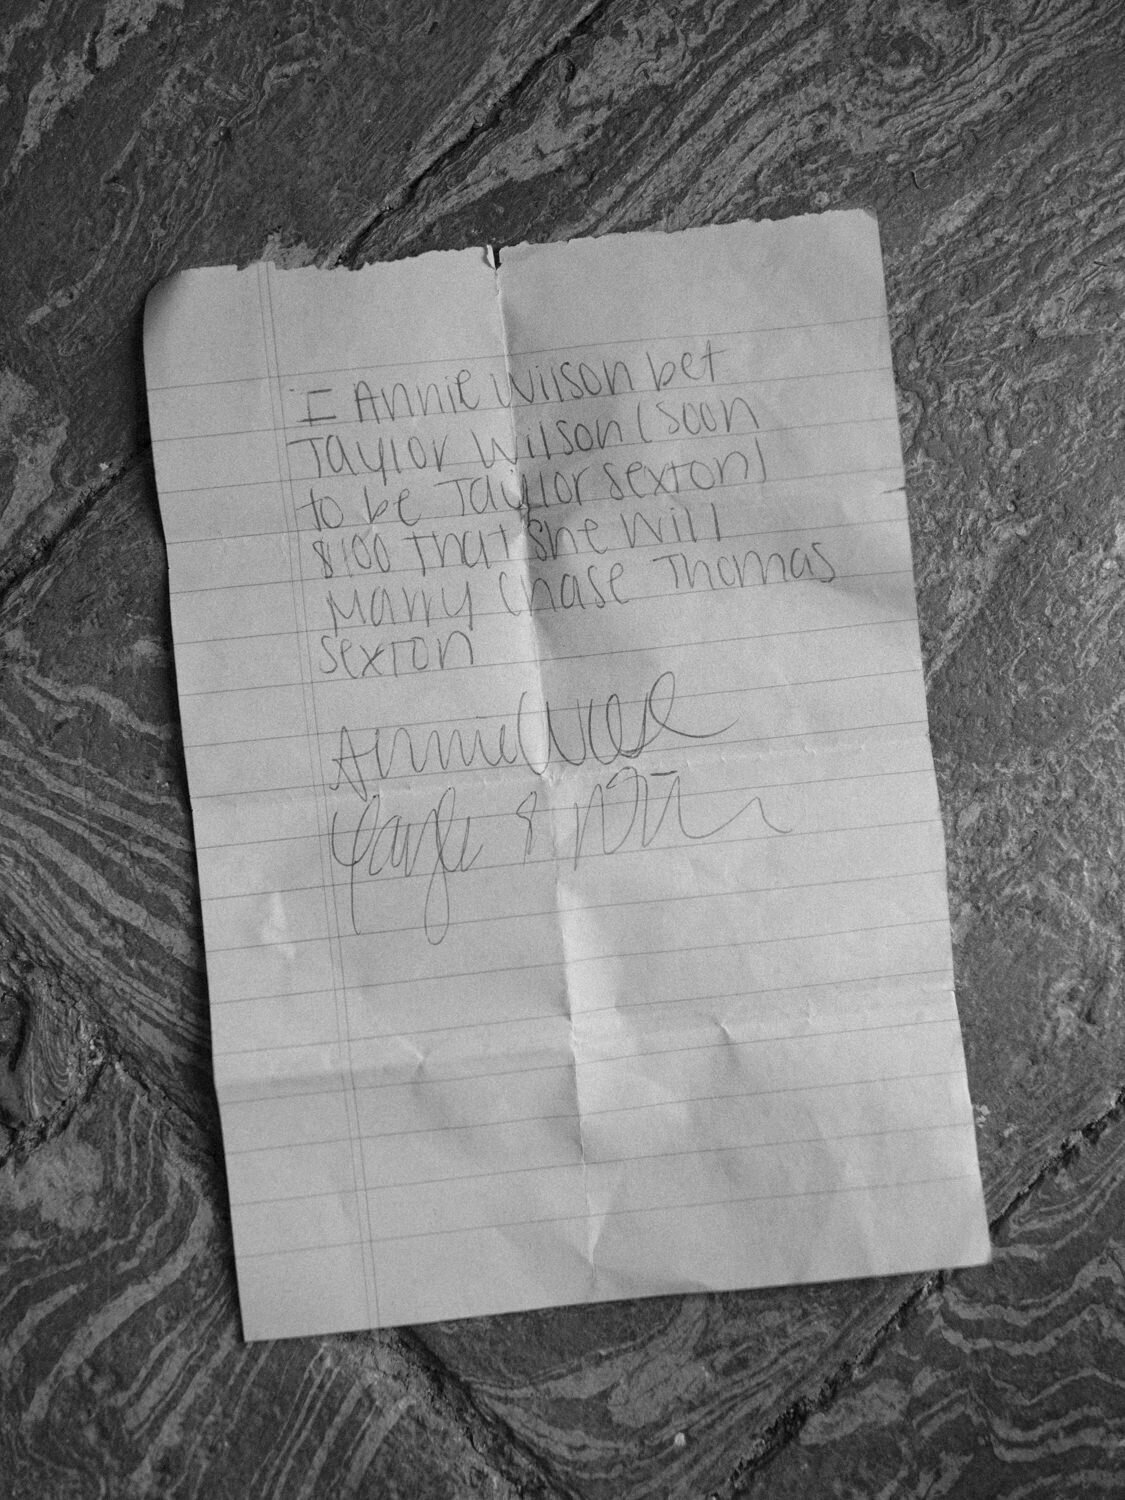 I Annie Wilson bet
Taylor Wilson (soon
to be Taylor sexton)
$100 That she will
Marry Chase Thomas
sexton
Annie